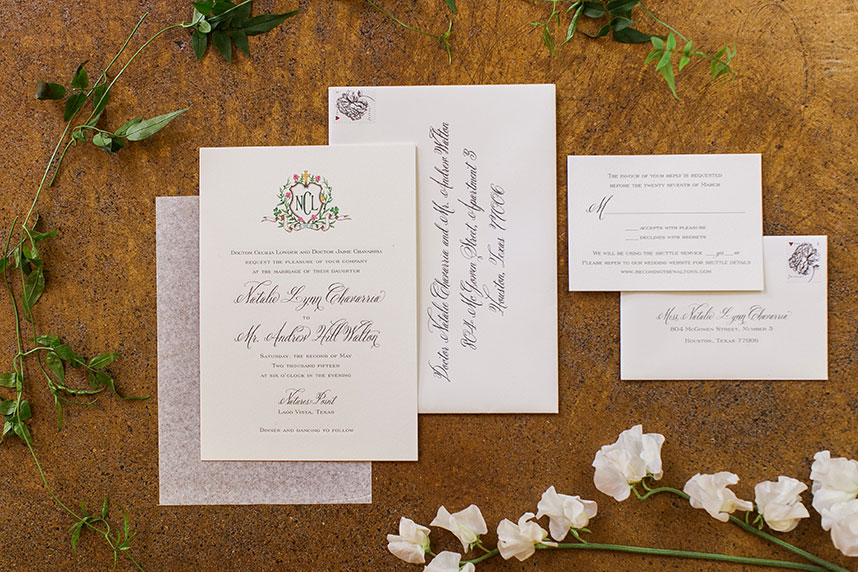 NCL
Doctor Cecilia Lowder and Doctor Jaime Chavarria
request the pleasure of your company
at the marriage of their daughter
Natalie Lynn Chavarria
to
Mr. Andrew Hill Walton
Saturday, the second of May
Two thousand fifteen
at six o'clock in the evening
Natures Point
Lago Vista, Texas
Dinner and dancing to follow
Doctor Natalie Chavarria and Mr. Andrew Walton
804 McGowen Street, Apartment 3
Houston, Texas 77006
The favour of your reply is requested
before the twenty seventh of March
M
accepts with pleasure
declines with regrets
We will be using the shuttle service yes or
Please refer to our wedding website for shuttle details
www.becomingthewaltons.com
Miss Natalie Lynn Chavarria
804 McGowen Street, Number 3
Houston, Texas 77006